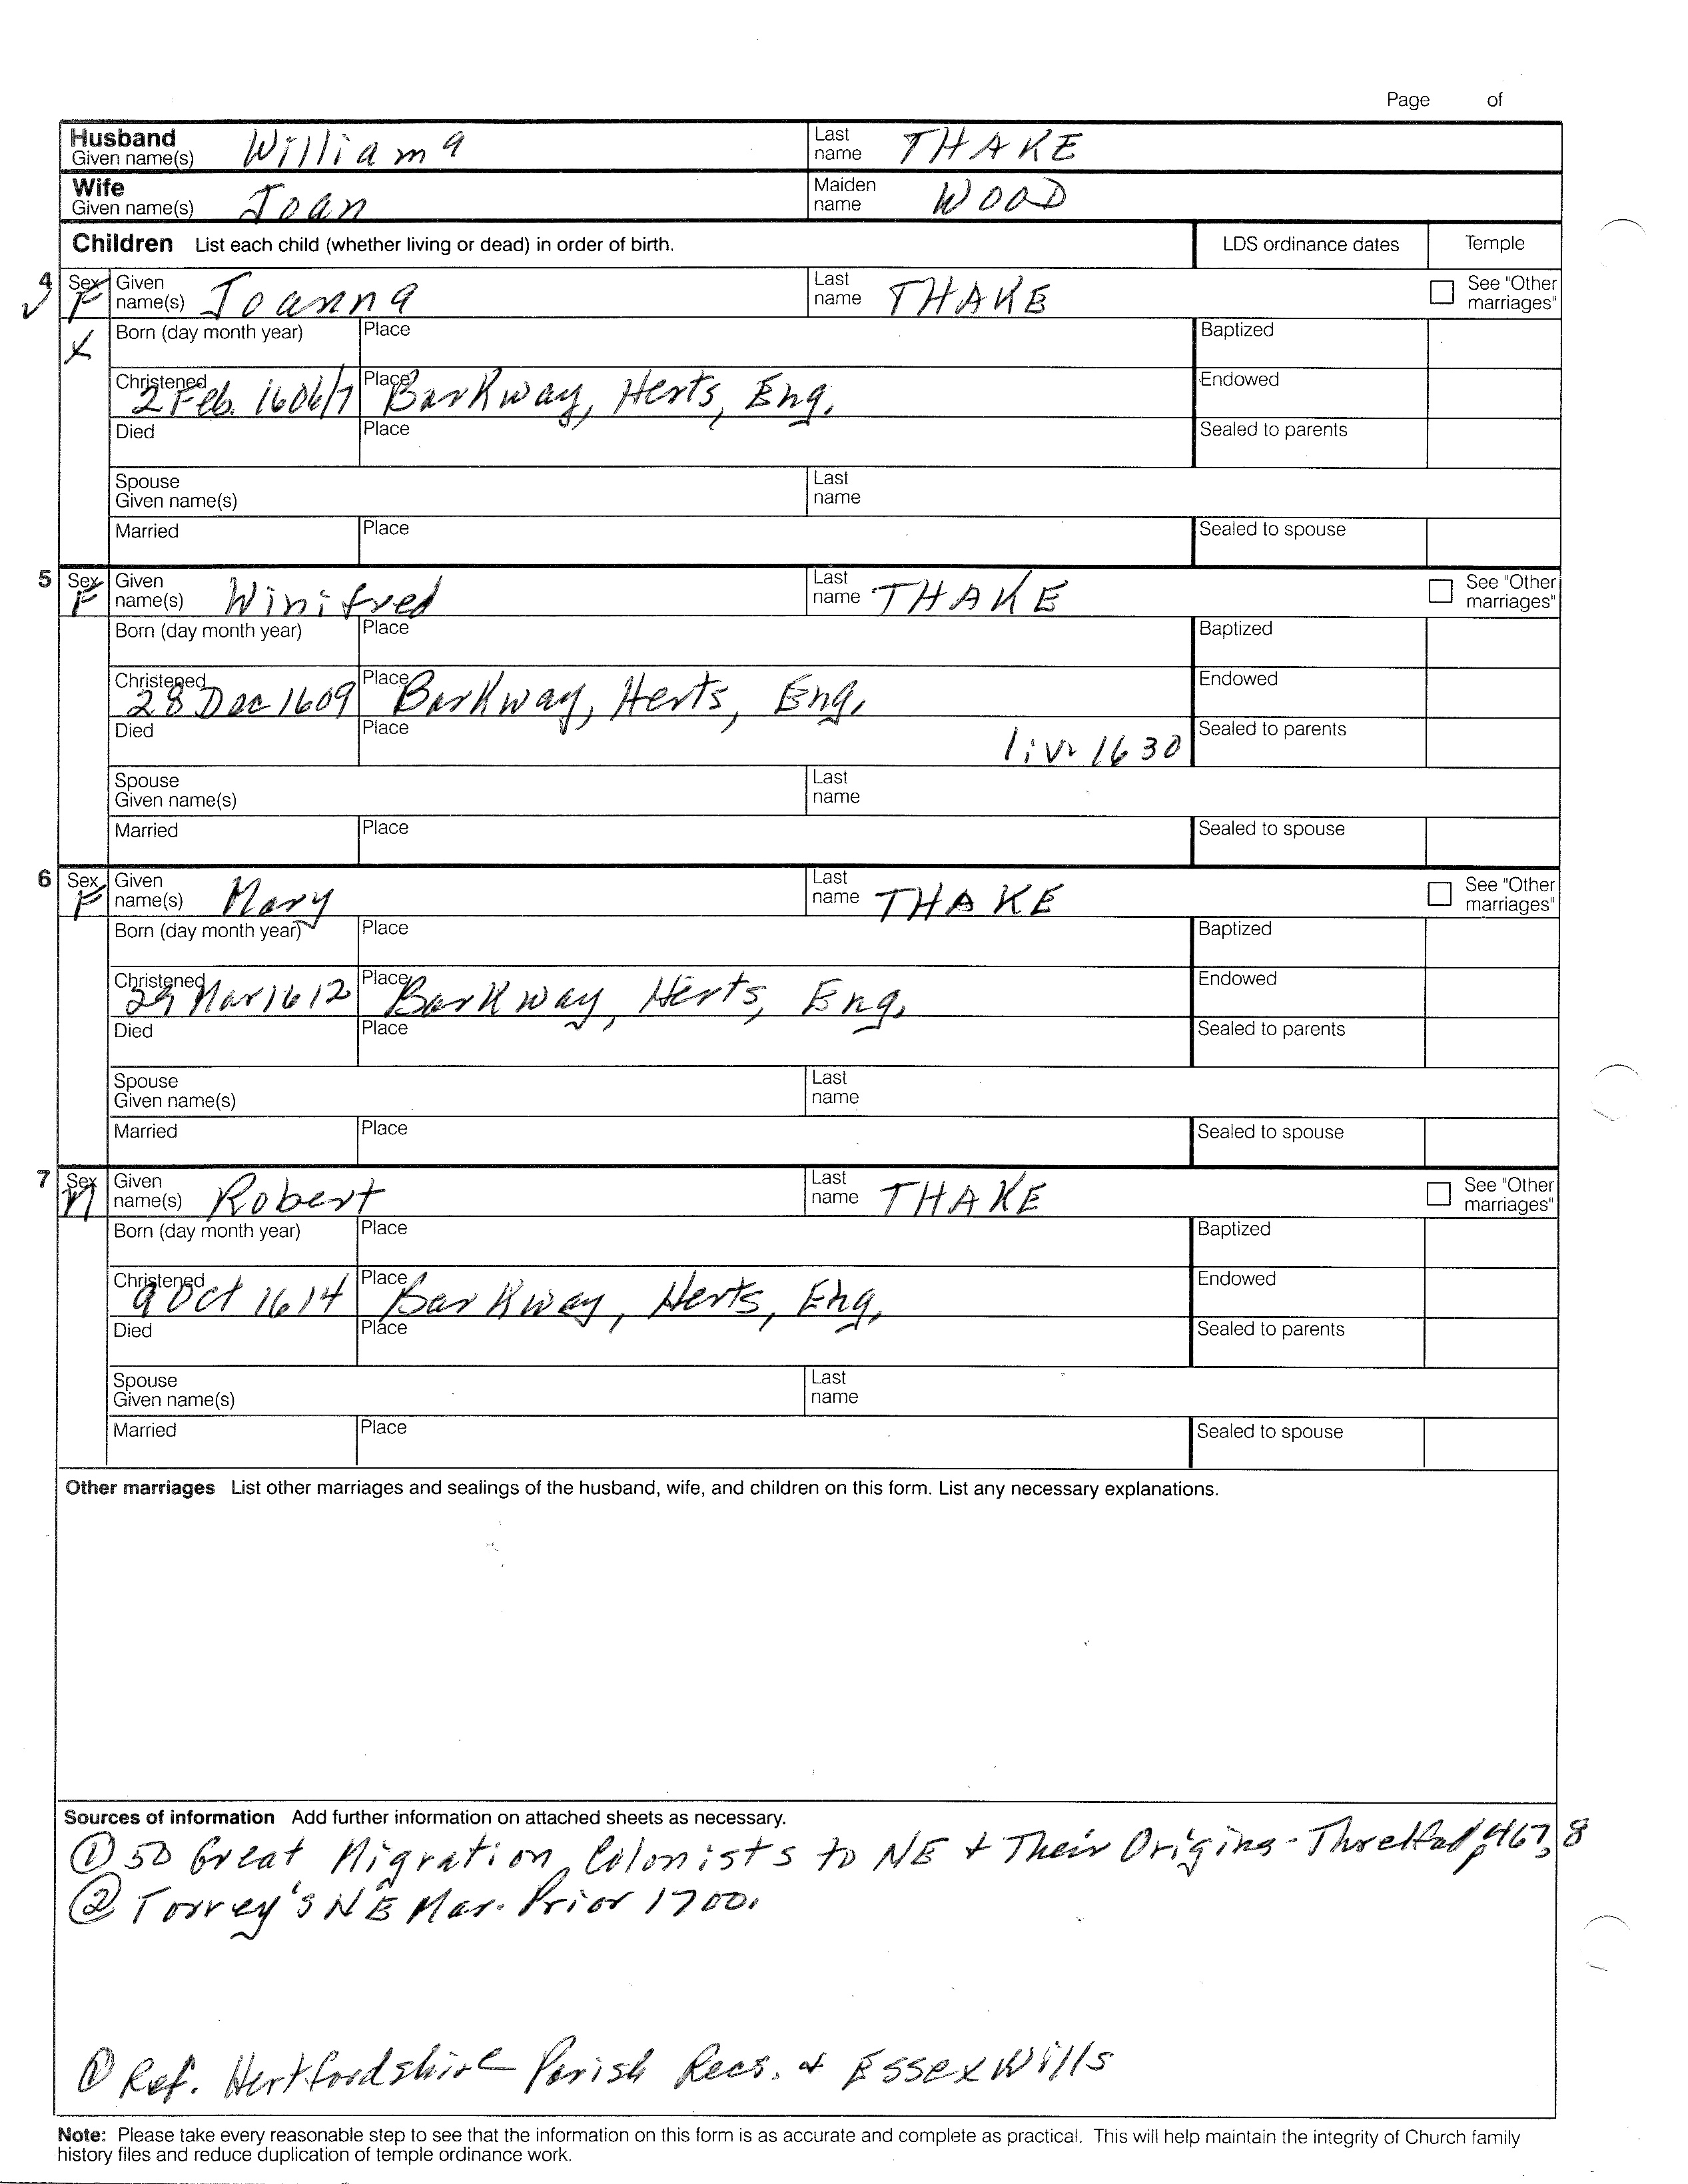 Page of
Husband Given name(s) William 9 Last name THAKE
Wife Given name(s) Joan Maiden name WOOD
Children List each child (whether living or dead) in order of birth. LDS ordinance dates Temple
4 Sex F Given name(s) Joanna Last name THAKE See "Other marriages"
X Born (day month year) Place Baptized
Christened 2 Feb. 1606/7 Place Barkway, Herts, Eng. Endowed
Died Place Sealed to parents
Spouse Given name(s) Last name
Married Place Sealed to spouse
5 Sex F Given name(s) Winifred Last name THAKE See "Other marriages"
Born (day month year) Place Baptized
Christened 28 Dec 1609 Place Barkway, Herts, Eng. Endowed
Died Place liv 1630 Sealed to parents
Spouse Given name(s) Last name
Married Place Sealed to spouse
6 Sex F Given name(s) Mary Last name THAKE See "Other marriages"
Born (day month year) Place Baptized
Christened 29 Mar 1612 Place Barkway, Herts, Eng. Endowed
Died Place Sealed to parents
Spouse Given name(s) Last name
Married Place Sealed to spouse
7 Sex M Given name(s) Robert Last name THAKE See "Other marriages"
Born (day month year) Place Baptized
Christened 9 Oct 1614 Place Barkway, Herts, Eng. Endowed
Died Place Sealed to parents
Spouse Given name(s) Last name
Married Place Sealed to spouse
Other marriages List other marriages and sealings of the husband, wife, and children on this form. List any necessary explanations.
Sources of information Add further information on attached sheets as necessary.
① 50 Great Migration Colonists to NE + Their Origins - p467,8
② Torrey's NE Mar. Prior 1700.
① Ref. Hertfordshire Parish Recs. + Essex Wills
Note: Please take every reasonable step to see that the information on this form is as accurate and complete as practical. This will help maintain the integrity of Church family
history files and reduce duplication of temple ordinance work.